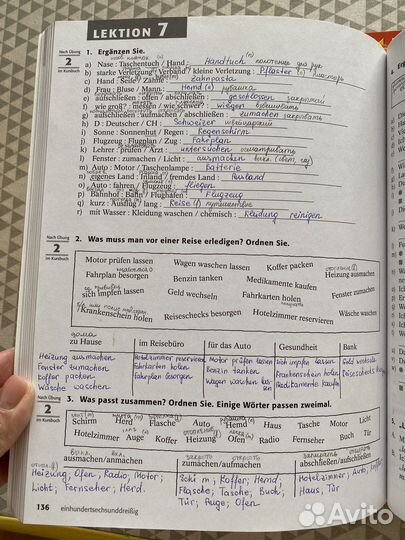 LEKTION 7
Nach Übung
2
im Kursbuch
1. Ergänzen Sie.
a) Nase : Taschentuch / Hand : Handtuch (n) полотенце для рук
b) starke Verletzung : Verband / kleine Verletzung : Pflaster (n) пластырь
c) Hand : Seife / Zähne : Zahnpasta
d) Frau : Bluse / Mann : Hemd (n) рубашка
e) aufschließen : offen / abschließen : geschlossen закрытый
f) wie groß? : messen / wie schwer? : wiegen взвешивать
g) aufschließen : aufmachen / abschließen : zumachen закрывать
h) D : Deutscher / CH : Schweizer швейцарский
i) Sonne : Sonnenhut / Regen : Regenschirm
j) Flugzeug : Flugplan / Zug : Fahrplan
k) Lehrer : prüfen / Arzt : untersuchen осматривать
l) Fenster : zumachen / Licht : ausmachen выкл. (свет, газ)
m) Auto : Motor / Taschenlampe : Batterie
n) eigenes Land : Inland / fremdes Land : Ausland
o) Auto : fahren / Flugzeug : fliegen
p) Bahnhof : Bahn / Flughafen : Flugzeug
q) kurz : Ausflug / lang : Reise (f) путешествие
r) mit Wasser : Kleidung waschen / chemisch : Kleidung reinigen
Nach Übung
2
im Kursbuch
2. Was muss man vor einer Reise erledigen? Ordnen Sie.
Motor prüfen lassen Wagen waschen lassen Koffer packen Heizung ausmachen
Fahrplan besorgen Benzin tanken Medikamente kaufen
sich impfen lassen Geld wechseln Fahrkarten holen Fenster zumachen
Krankenschein holen Reiseschecks besorgen Hotelzimmer reservieren Wäsche waschen
дома
zu Hause im Reisebüro für das Auto Gesundheit Bank
Heizung ausmachen Hotelzimmer reservieren Motor prüfen lassen sich impfen lassen Geld wechseln
Fenster zumachen Fahrkarten holen Benzin tanken Krankenschein holen Reiseschecks besorgen
Koffer packen Fahrplan besorgen Wagen waschen lassen Medikamente kaufen
Wäsche waschen
Nach Übung
2
im Kursbuch
3. Was passt zusammen? Ordnen Sie. Einige Wörter passen zweimal.
Schirm Herd Flasche Auto Hemd Haus Tasche Motor Licht
Hotelzimmer Auge Koffer Heizung Ofen Radio Fernseher Buch Tür
ausmachen/anmachen zumachen/aufmachen abschließen/aufschließen
Heizung, Ofen, Radio, Motor, Schirm, Koffer, Hemd, Hotelzimmer, Auto, Koffer
Licht, Fernseher, Herd. Flasche, Tasche, Buch, Haus, Tür
Tür, Auge, Ofen
136 einhundertsechsunddreißig
Avito